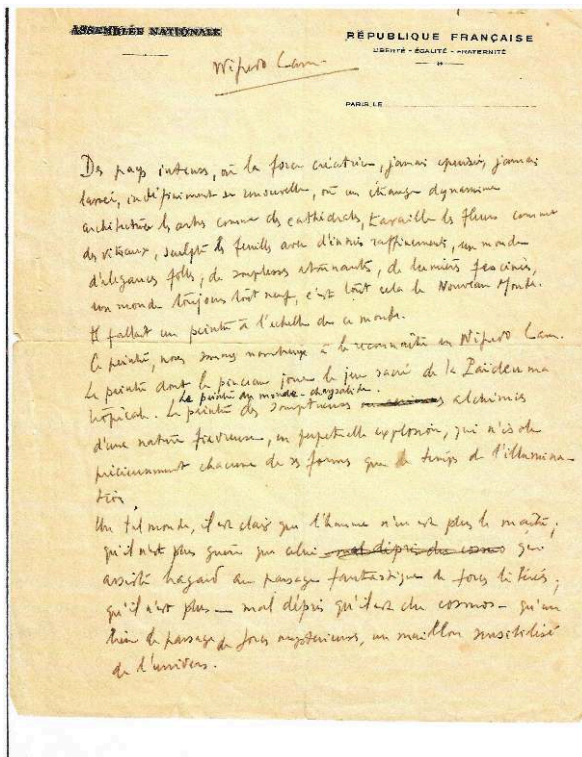 ASSEMBLÉE NATIONALE
RÉPUBLIQUE FRANÇAISE
LIBERTÉ - ÉGALITÉ - FRATERNITÉ
Wifredo Lam.
PARIS, LE
Des pays intenses, où la force créatrice, jamais épuisée, jamais
lassée, indéfiniment se renouvelle, où un étrange dynamisme
architecture les arbres comme des cathédrales, travaille les fleurs comme
des vitraux, sculpte les feuilles avec d'inouïs raffinements, un monde
d'élégances folles, de souplesses étonnantes, de lumières fascinées,
un monde toujours tout neuf, c'est tout cela le Nouveau Monde.
Il fallait un peintre à l'échelle de ce monde.
Ce peintre, nous sommes nombreux à le reconnaître en Wifredo Lam.
Le peintre dont le pinceau joue le jeu sacré de la Païdeuma
Le peintre du monde-chrysalide.
tropicale. Le peintre des somptueuses alchimies
d'une nature fiévreuse, en perpétuelle explosion, qui n'isole
précieusement chacune de ses formes que le temps de l'illumina-
tion
Un tel monde, il est clair que l'homme n'en est plus le maître;
qu'il n'est plus guère que celui mal dépris du cosmos qui
assiste hagard au passage fantastique de forces libérées;
qu'il n'est plus - mal dépris qu'il est du cosmos - qu'un
lieu de passage de forces mystérieuses, un maillon sensibilisé
de l'univers.